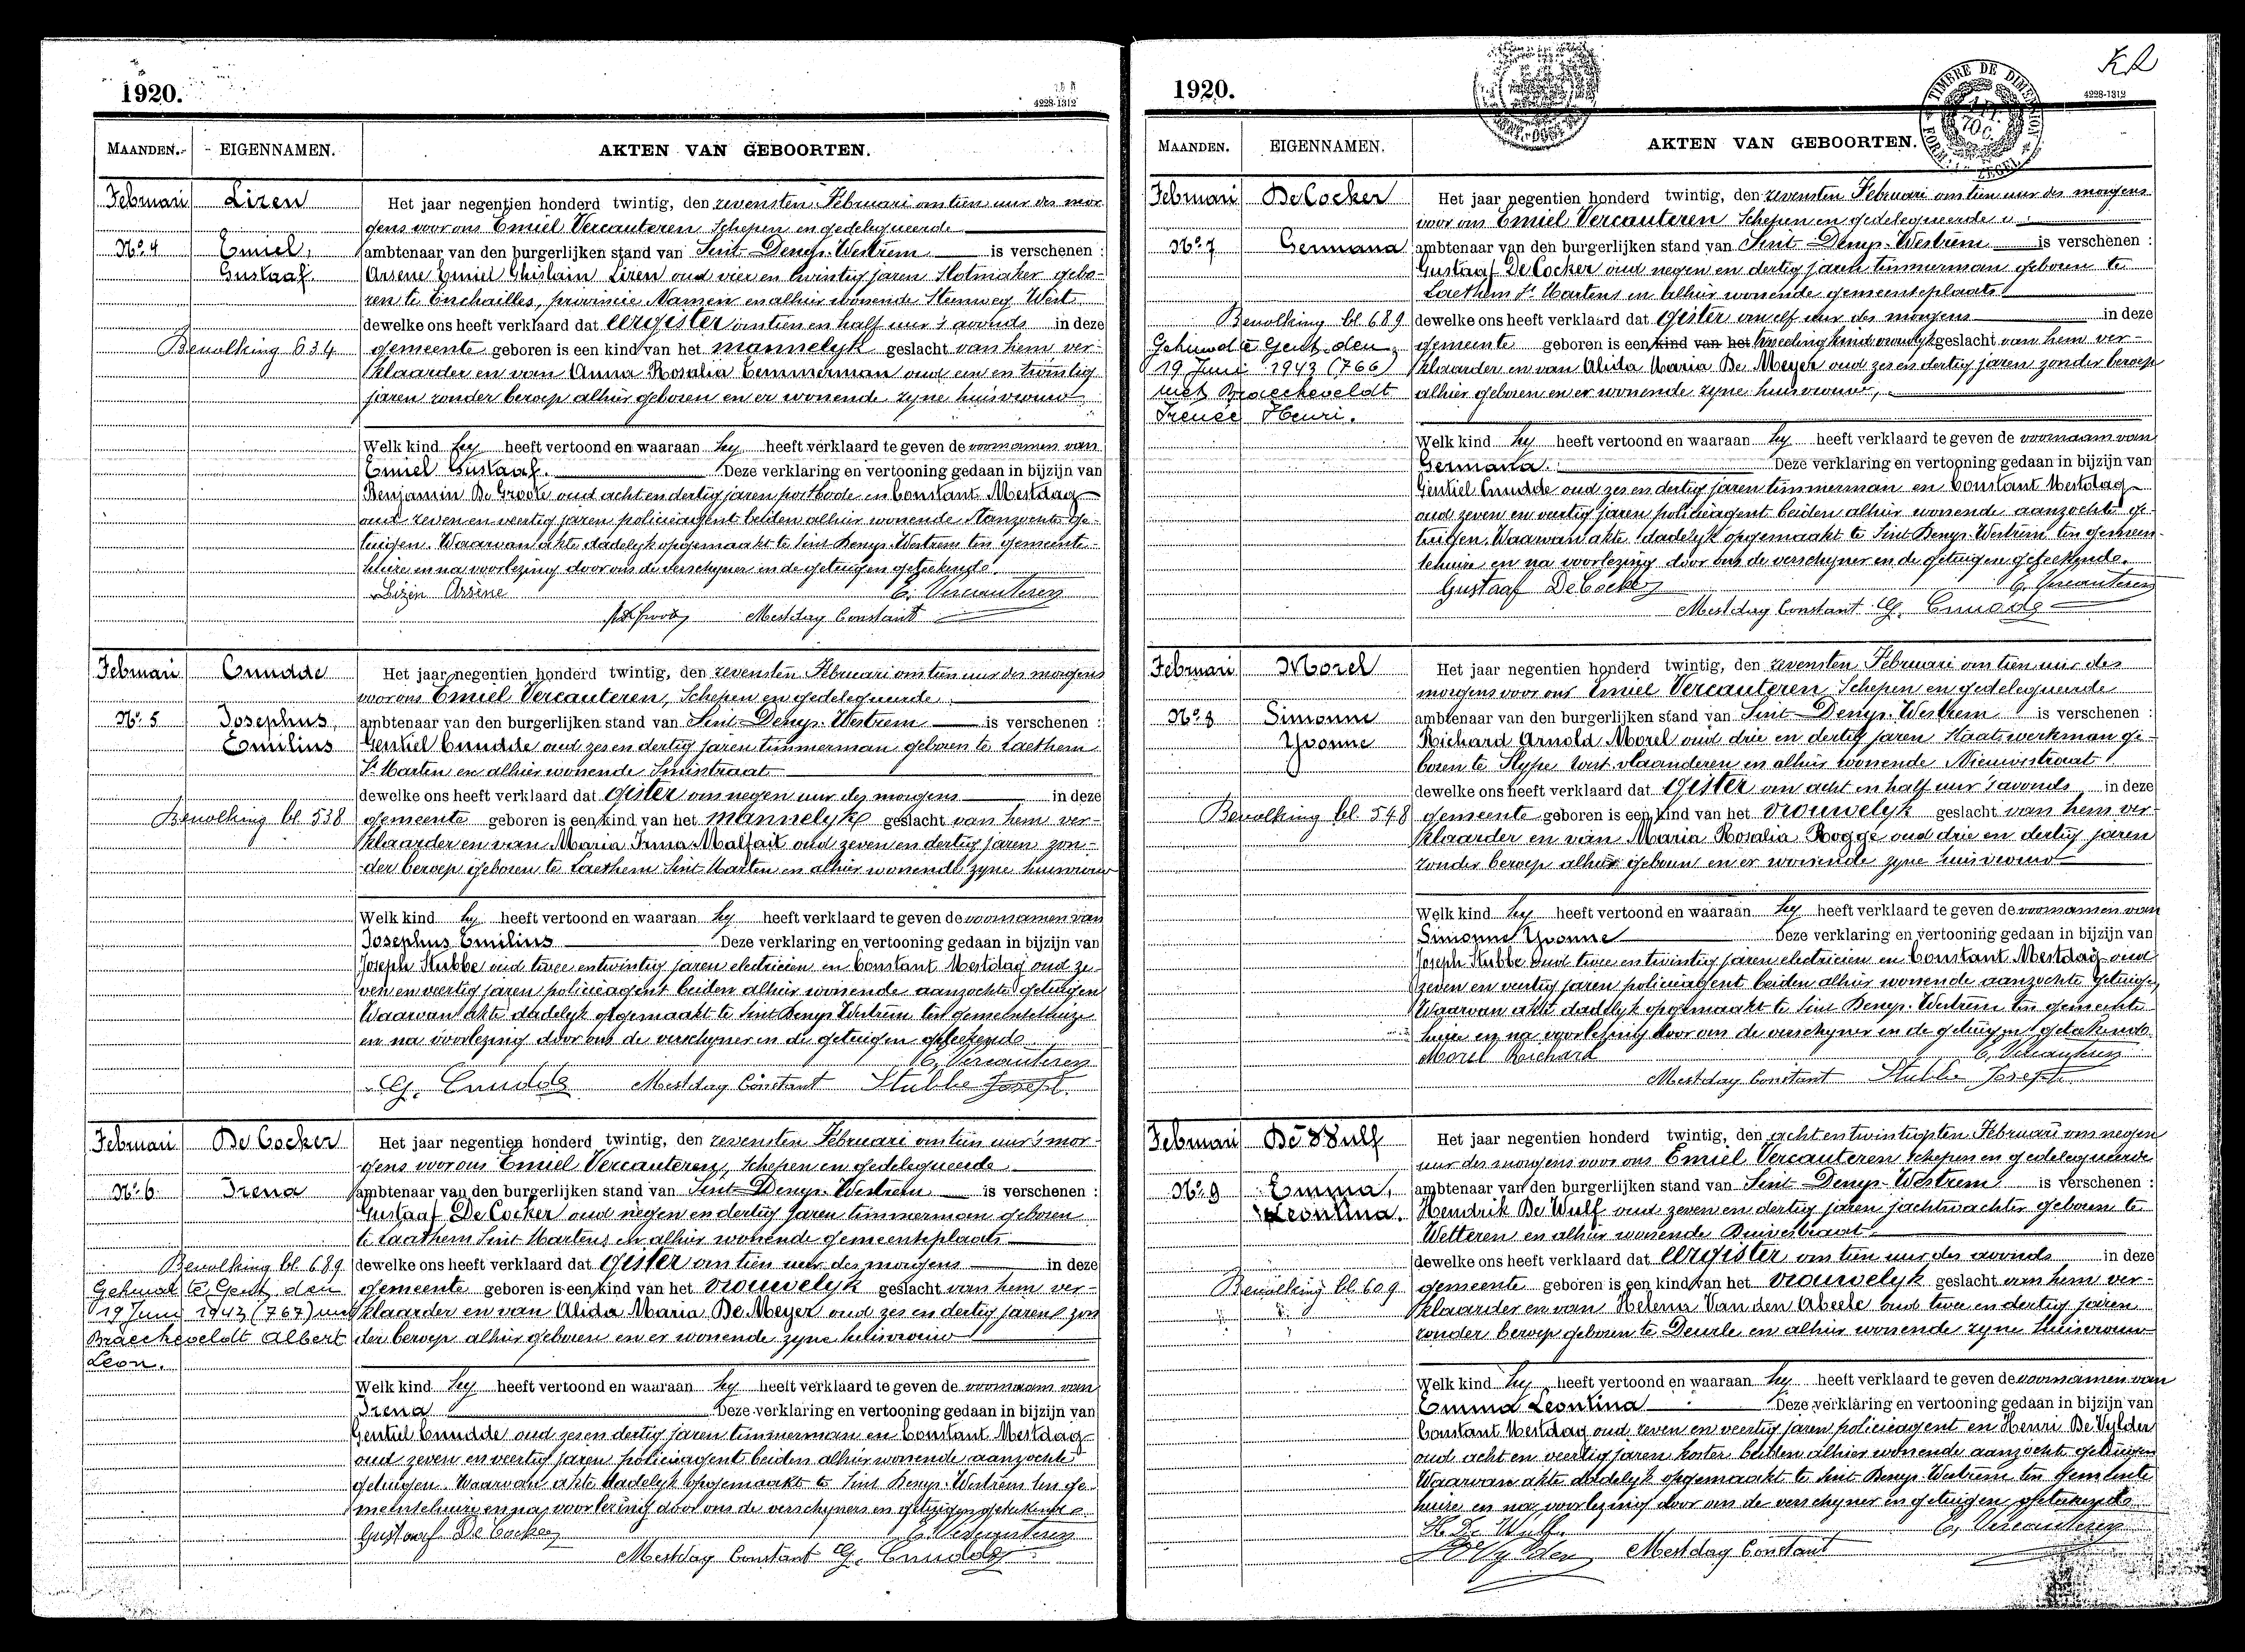 1920.
4228-1312
MAANDEN.
EIGENNAMEN.
AKTEN VAN GEBOORTEN.
Februari
Lizen
Het jaar negentien honderd twintig, den zevensten Februari om tien uur des mor-
gens voor ons Emiel Vercauteren Schepen en gedelegueerde
No. 4
Emiel,
ambtenaar van den burgerlijken stand van Sint-Denys-Westrem is verschenen :
Gustaaf.
Arsene Emiel Ghislain Lizen oud vier en twintig jaren Slotmaker gebo-
ren te Enchailles, provincie Namen en alhier wonende Steenweg West
dewelke ons heeft verklaard dat eergister om tien en half uur 's avonds in deze
Bevolking 634
gemeente geboren is een kind van het mannelyk geslacht van hem ver-
klaarder en van Anna Rosalia Temmerman oud een en twintig
jaren zonder beroep alhier geboren en er wonende zyne huisvrouw
Welk kind hy heeft vertoond en waaraan hy heeft verklaard te geven de voornamen van
Emiel Gustaaf. Deze verklaring en vertooning gedaan in bijzijn van
Benjamin De Groote oud acht en dertig jaren postbode en Constant Mestdag
oud zeven en veertig jaren policieagent beiden alhier wonende aanzochte ge-
tuigen. Waarvan akte dadelyk opgemaakt te Sint-Denys-Westrem ten gemeente-
huize en na voorlezing door ons de verschyner en de getuigen geteekend.
Lizen Arsène E. Vercauteren
Mestdag Constant
Februari
Cnudde
Het jaar negentien honderd twintig, den zevensten Februari om tien uur des morgens
voor ons Emiel Vercauteren, Schepen en gedelegueerde
No. 5
Josephus,
ambtenaar van den burgerlijken stand van Sint-Denys-Westrem is verschenen :
Emilius
Gentiel Cnudde oud zes en dertig jaren timmerman geboren te Laethem
St Marten en alhier wonende
dewelke ons heeft verklaard dat gister om negen uur des morgens in deze
Bevolking bl. 538
gemeente geboren is een kind van het mannelyk geslacht van hem ver-
klaarder en van Maria Irma Malfait oud zeven en dertig jaren zon-
der beroep geboren te Laethem Sint Marten en alhier wonende zyne huisvrouw
Welk kind hy heeft vertoond en waaraan hy heeft verklaard te geven de voornamen van
Josephus Emilius Deze verklaring en vertooning gedaan in bijzijn van
Joseph Stubbe oud twee en twintig jaren electricien en Constant Mestdag oud ze-
ven en veertig jaren policieagent beiden alhier wonende aanzochte getuigen
Waarvan akte dadelyk opgemaakt te Sint Denys Westrem ten gemeentehuize
en na voorlezing door ons de verschyner en de getuigen geteekend.
E. Vercauteren
G. Cnudde Mestdag Constant Stubbe Joseph.
Februari
De Cocker
Het jaar negentien honderd twintig, den zevensten Februari om tien uur 's mor-
gens voor ons Emiel Vercauteren, Schepen en gedelegueerde
No. 6.
Irena
ambtenaar van den burgerlijken stand van Sint-Denys-Westrem is verschenen :
Gustaaf De Cocker oud negen en dertig jaren timmerman geboren
te Laathem Sint Martens en alhier wonende gemeenteplaats
Bevolking bl. 689
dewelke ons heeft verklaard dat gister om tien uur des morgens in deze
Gehuwd te Gent den
gemeente geboren is een kind van het vrouwelyk geslacht van hem ver-
19 Juni 1943 (767) met
klaarder en van Alida Maria De Meyer oud zes en dertig jaren zon
Braeckeveldt Albert
der beroep alhier geboren en er wonende zyne huisvrouw
Leon.
Welk kind hy heeft vertoond en waaraan hy heeft verklaard te geven de voornaam van
Irena Deze verklaring en vertooning gedaan in bijzijn van
Gentiel Cnudde oud zes en dertig jaren timmerman en Constant Mestdag
oud zeven en veertig jaren policieagent beiden alhier wonende aanzochte
getuigen. Waarvan akte dadelyk opgemaakt te Sint Denys-Westrem ten ge-
meentehuize en na voorlezing door ons de verschyners en getuigen geteekend.
Gustaaf De Cocker E. Vercauteren
Mestdag Constant G. Cnudde
1920.
KR
TIMBRE DE DIMENSION
4228-1312
MAANDEN.
EIGENNAMEN.
AKTEN VAN GEBOORTEN.
Februari
De Cocker
Het jaar negentien honderd twintig, den zevensten Februari om tien uur des morgens
voor ons Emiel Vercauteren Schepen en gedelegueerde
No. 7
Germana
ambtenaar van den burgerlijken stand van Sint-Denys-Westrem is verschenen :
Gustaaf De Cocker oud negen en dertig jaren timmerman geboren te
Laethem St Martens en alhier wonende gemeenteplaats
Bevolking bl. 689
dewelke ons heeft verklaard dat gister om elf uur des morgens in deze
Gehuwd te Gent den
gemeente geboren is een kind van het tweeling kind vrouwlyk geslacht van hem ver-
19 Juni 1943 (766)
klaarder en van Alida Maria De Meyer oud zes en dertig jaren zonder beroep
met Braeckeveldt
alhier geboren en er wonende zyne huisvrouw,
Irenée Henri.
Welk kind hy heeft vertoond en waaraan hy heeft verklaard te geven de voornaam van
Germana. Deze verklaring en vertooning gedaan in bijzijn van
Gentiel Cnudde oud zes en dertig jaren timmerman en Constant Mestdag
oud zeven en veertig jaren policieagent beiden alhier wonende aanzochte ge-
tuigen. Waarvan akte dadelyk opgemaakt te Sint-Denys-Westrem ten gemeen-
tehuize en na voorlezing door ons de verschyner en de getuigen geteekend.
Gustaaf De Cocker E. Vercauteren
Mestdag Constant G. Cnudde
Februari
Morel
Het jaar negentien honderd twintig, den zevensten Februari om tien uur des
morgens voor ons Emiel Vercauteren, Schepen en gedelegueerde
No. 8
Simonne
ambtenaar van den burgerlijken stand van Sint-Denys-Westrem is verschenen :
Yvonne
Richard Arnold Morel oud drie en dertig jaren Staatswerkman ge-
boren te Slype west-vlaanderen en alhier wonende Nieuwstraat
dewelke ons heeft verklaard dat gister om acht en half uur 's avonds in deze
Bevolking bl. 548
gemeente geboren is een kind van het vrouwelyk geslacht van hem ver-
klaarder en van Maria Rosalia Rogge oud drie en dertig jaren
zonder beroep alhier geboren en er wonende zyne huisvrouw
Welk kind hy heeft vertoond en waaraan hy heeft verklaard te geven de voornamen van
Simonne Yvonne Deze verklaring en vertooning gedaan in bijzijn van
Joseph Stubbe oud twee en twintig jaren electricien en Constant Mestdag oud
zeven en veertig jaren policieagent beiden alhier wonende aanzochte getuigen
Waarvan akte dadelyk opgemaakt te Sint Denys-Westrem ten gemeente
huize en na voorlezing door ons de verschyner en de getuigen geteekend
Morel Richard E. Vercauteren
Mestdag Constant Stubbe Joseph
Februari
De Wulf
Het jaar negentien honderd twintig, den acht en twintigsten Februari om negen
uur des morgens voor ons Emiel Vercauteren Schepen en gedelegueerde
No. 9
Emma,
ambtenaar van den burgerlijken stand van Sint-Denys-Westrem is verschenen :
Leontina.
Hendrik De Wulf oud zeven en dertig jaren jachtwachter geboren te
Wetteren en alhier wonende
dewelke ons heeft verklaard dat eergister om tien uur des avonds in deze
Bevolking bl. 609
gemeente geboren is een kind van het vrouwelyk geslacht van hem ver-
klaarder en van Helena Van den Abeele oud twee en dertig jaren
zonder beroep geboren te Deurle en alhier wonende zyne huisvrouw
Welk kind hy heeft vertoond en waaraan hy heeft verklaard te geven de voornamen van
Emma Leontina Deze verklaring en vertooning gedaan in bijzijn van
Constant Mestdag oud zeven en veertig jaren policieagent en Henri De Vylder
oud acht en veertig jaren koster beiden alhier wonende aanzochte getuigen
Waarvan akte dadelyk opgemaakt te Sint Denys-Westrem ten Gemeente
huize en na voorlezing door ons de verschyner en getuigen geteekend.
H. De Wulf. E. Vercauteren
De Vylder Mestdag Constant